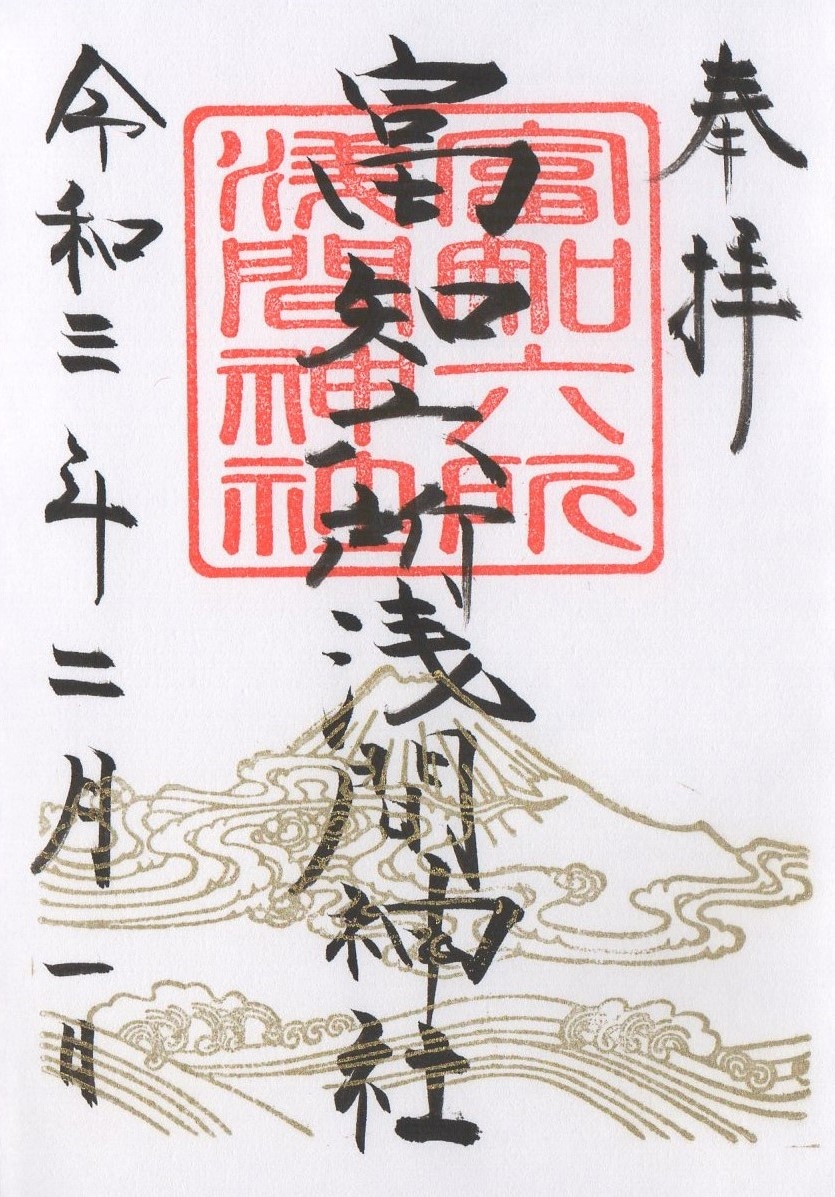 奉拝
富知六所浅間神社
富知六所
浅間神社
令和三年二月一日